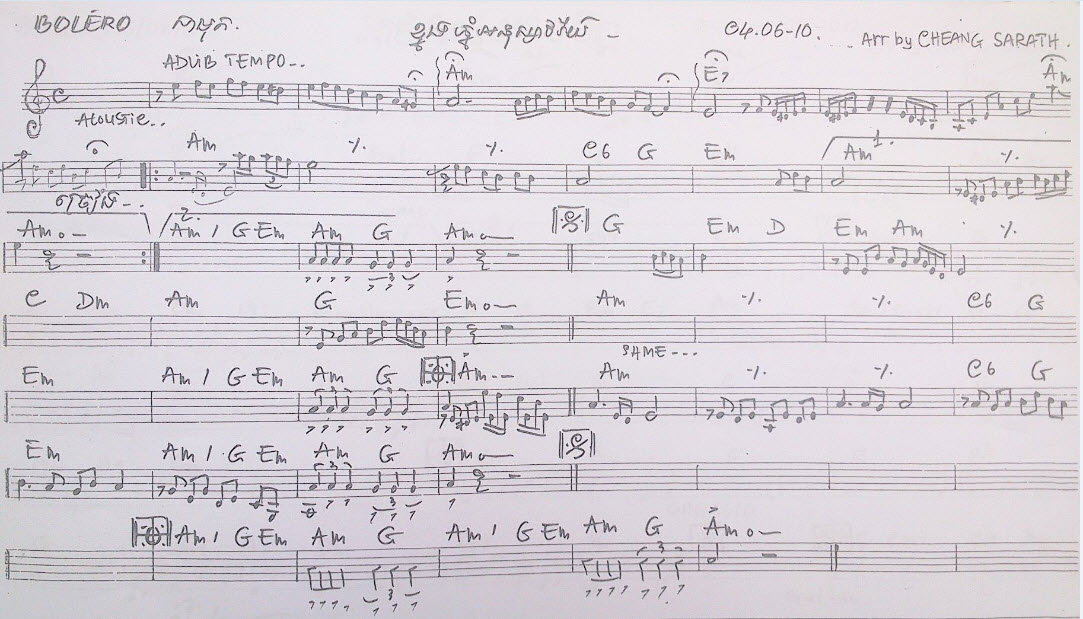 BOLÉRO 04.06-10. Arr by CHEANG SARATH.
ADLIB TEMPO-..
Am E7 Am
C
Acoustic..
Am ٪ ٪ C6 G Em Am 1. ٪
Am 2. Am / G Em Am G Am G Em D Em Am ٪
C Dm Am G Em Am ٪ ٪ C6 G
SAME ---
Em Am / G Em Am G Am Am ٪ ٪ C6 G
Em Am / G Em Am G Am
Am / G Em Am G Am / G Em Am G Am